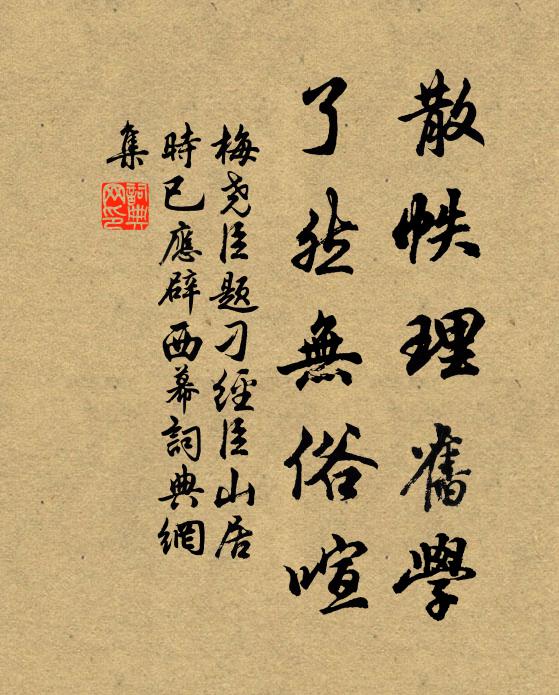 散帙理舊學
了然無俗喧
梅尧臣題刁經臣山居
時已應辟西幕詞典網
集
詞典网印